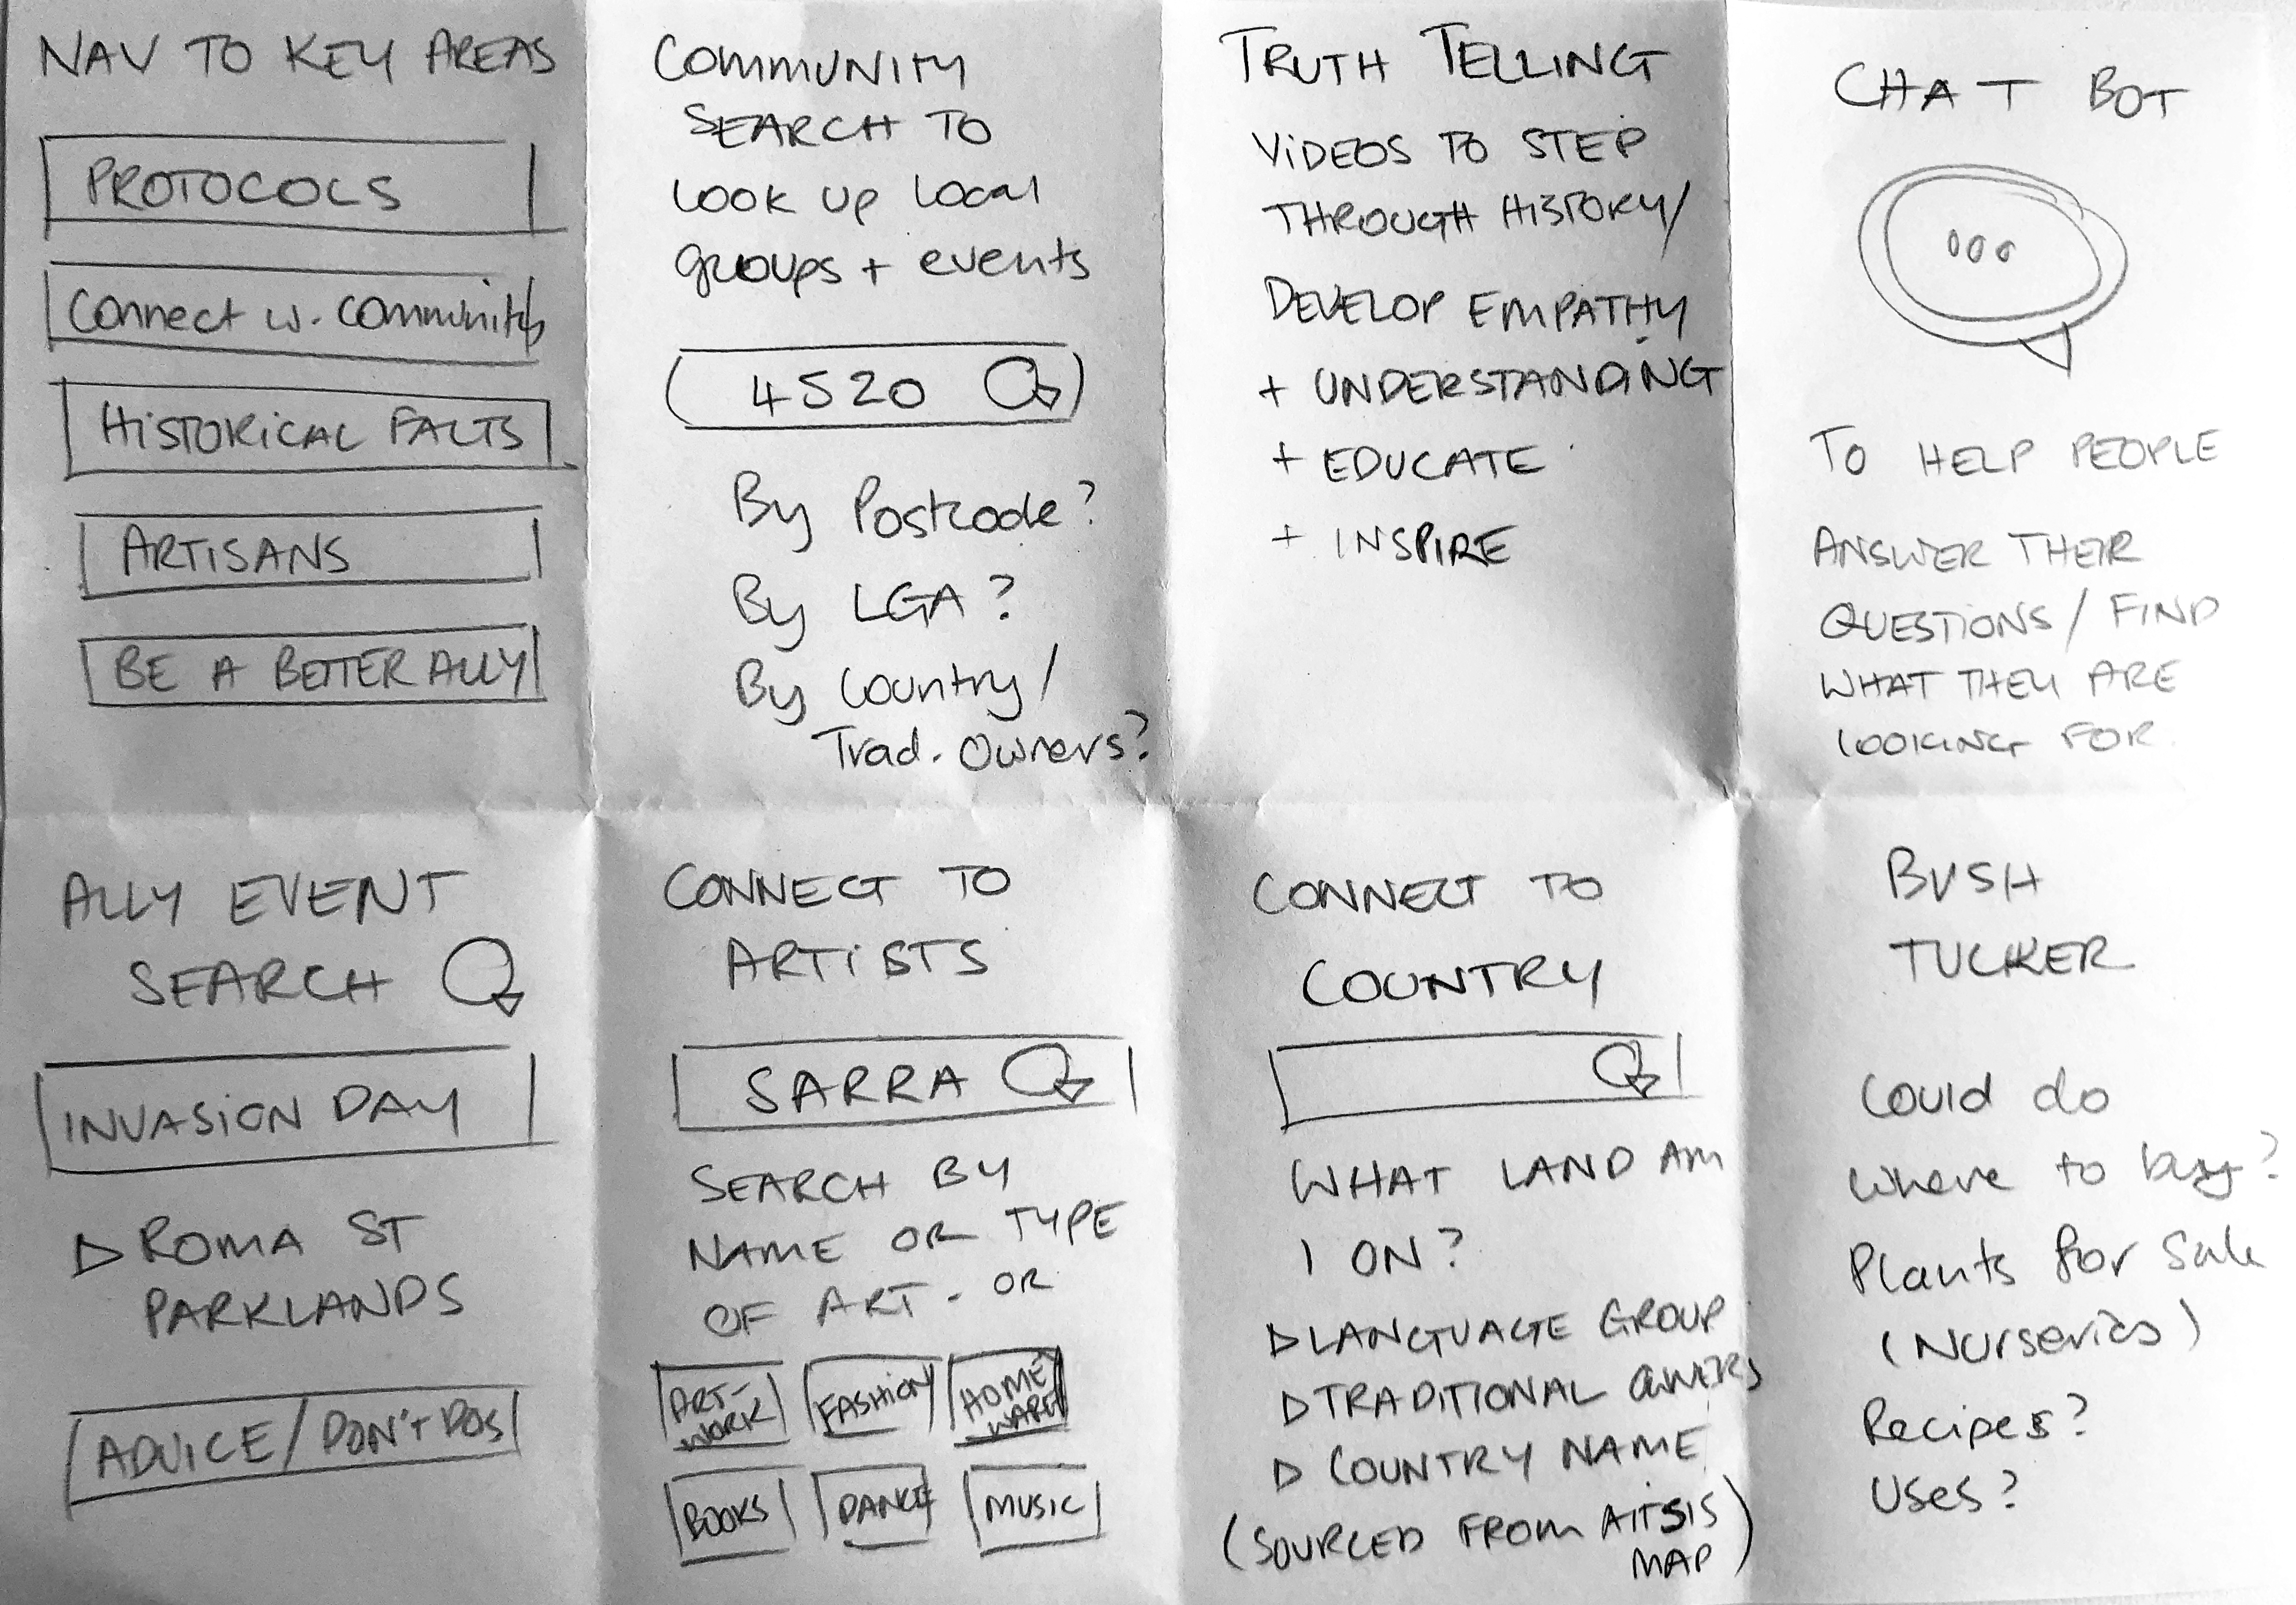 NAV TO KEY AREAS
PROTOCOLS
Connect w. community
HISTORICAL FACTS
ARTISANS
BE A BETTER ALLY
COMMUNITY
SEARCH TO
LOOK UP LOCAL
groups + events
4520
By Postcode?
By LGA?
By Country/
Trad. Owners?
TRUTH TELLING
VIDEOS TO STEP
THROUGH HISTORY/
DEVELOP EMPATHY
+ UNDERSTANDING
+ EDUCATE
+ INSPIRE
CHAT BOT
TO HELP PEOPLE
ANSWER THEIR
QUESTIONS / FIND
WHAT THEY ARE
LOOKING FOR.
ALLY EVENT
SEARCH
INVASION DAY
ROMA ST
PARKLANDS
ADVICE / DON'T DOS
CONNECT TO
ARTISTS
SARRA
SEARCH BY
NAME OR TYPE
OF ART - OR
ART-
WORK
FASHION
HOME
WARES
BOOKS
DANCE
MUSIC
CONNECT TO
COUNTRY
WHAT LAND AM
I ON?
LANGUAGE GROUP
TRADITIONAL OWNERS
COUNTRY NAME
(SOURCED FROM AITSIS
MAP)
BUSH
TUCKER
Could do
where to buy?
Plants for sale
(Nurseries)
Recipes?
Uses?